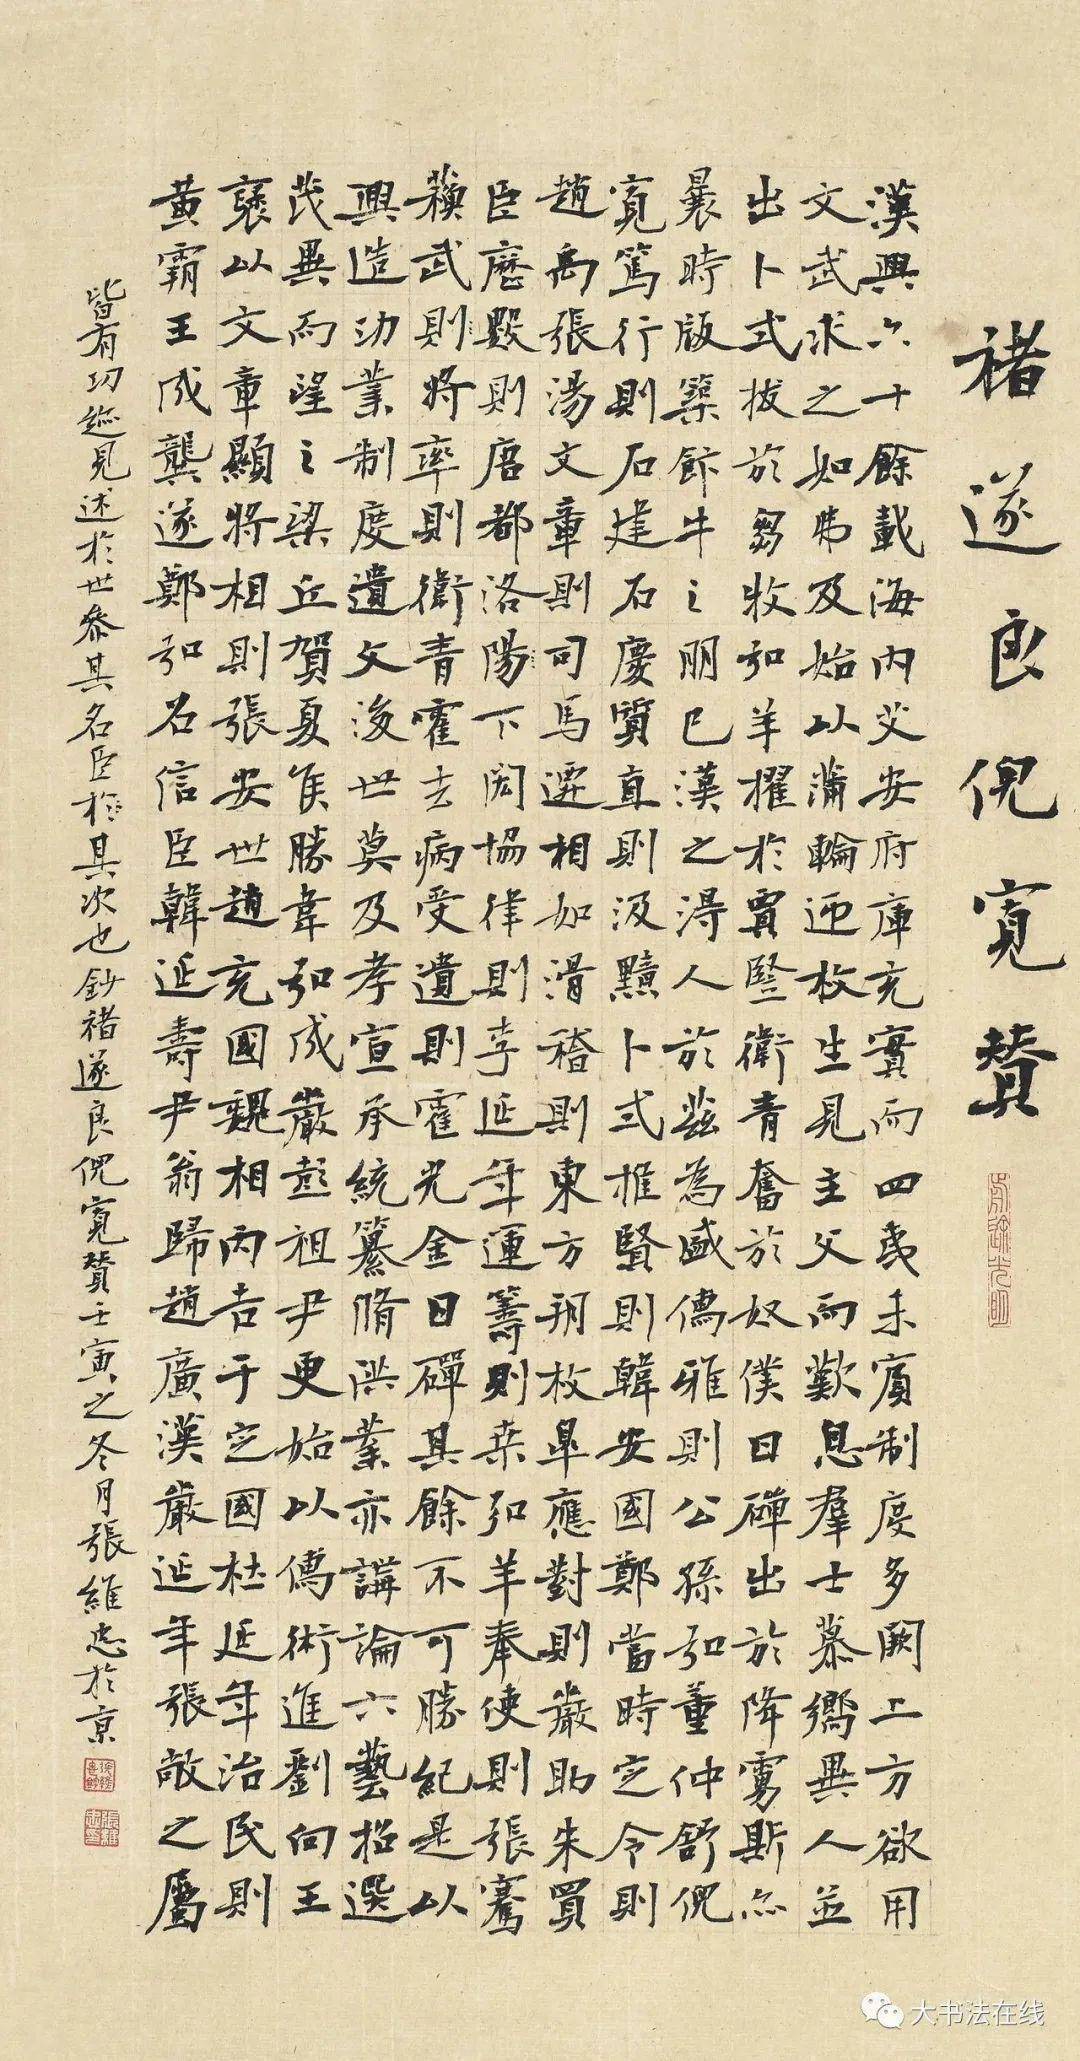 褚遂良倪寬贊
漢興六十餘載海内艾安府庫充實而四夷未賓制度多闕上方欲用
文武求之如弗及始以蒲輪迎枚生見主父而歎息羣士慕嚮異人並
出卜式拔於芻牧弘羊擢於賈豎衛青奮於奴僕日磾出於降虜斯亦
曩時版築飰牛之朋已漢之得人於茲為盛儒雅則公孫弘董仲舒倪
寬篤行則石建石慶質直則汲黯卜式推賢則韓安國鄭當時定令則
趙禹張湯文章則司馬遷相如滑稽則東方朔枚皋應對則嚴助朱買
臣曆數則唐都洛陽下閎協律則李延年運籌則桑弘羊奉使則張騫
蘇武則將率則衛青霍去病受遺則霍光金日磾其餘不可勝紀是以
興造功業制度遺文後世莫及孝宣承統纂脩洪業亦講論六藝招選
茂異而望之梁丘賀夏侯勝韋弘成嚴彭祖尹更始以儒術進劉向王
褒以文章顯將相則張安世趙充國魏相丙吉于定國杜延年治民則
黃霸王成龔遂鄭弘召信臣韓延壽尹翁歸趙廣漢嚴延年張敞之屬
皆有功迹見述於世參其名臣於其次也鈔褚遂良倪寬贊壬寅之冬月張維忠於京
大书法在线